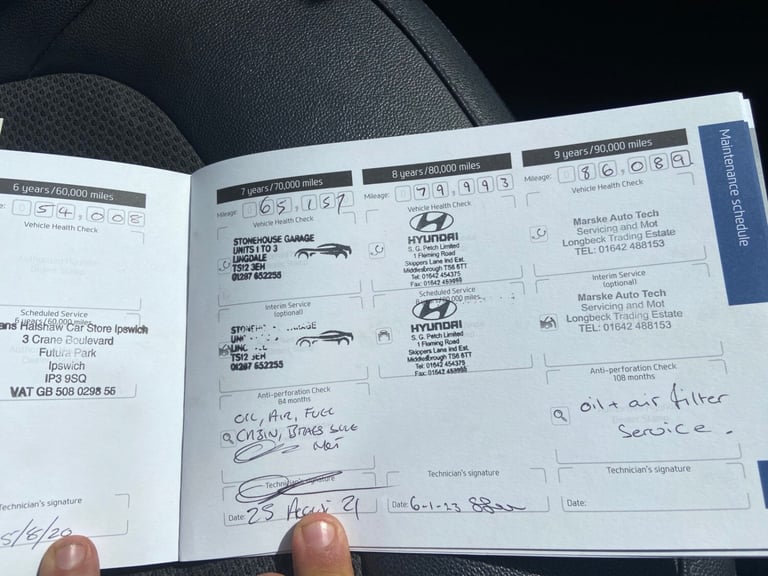 6 years/60,000 miles
54,008
Vehicle Health Check
Scheduled Service
ans Halshaw Car Store Ipswich
3 Crane Boulevard
Futura Park
Ipswich
IP3 9SQ
VAT GB 508 0298 56
Technician's signature
5/8/20
7 years/70,000 miles
Mileage: 65,157
Vehicle Health Check
STONEHOUSE GARAGE
UNITS 1 TO 3
LINGDALE
TS12 3EH
01287 652255
Interim Service
(optional)
TS12 3EH
01287 652255
Anti-perforation Check
84 months
OIL, AIR, FUEL
CABIN, BRAKE
MOT
Technician's signature
Date: 25 21
8 years/80,000 miles
Mileage: 79,993
Vehicle Health Check
HYUNDAI
S. G. Petch Limited
1 Fleming Road
Skippers Lane Ind Est.
Middlesbrough TS6 6TT
Tel: 01642 454375
Scheduled Service
HYUNDAI
S. G. Petch Limited
1 Fleming Road
Skippers Lane Ind Est.
Middlesbrough TS6 6TT
Tel: 01642 454375
Technician's signature
Date: 6-1-23
9 years/90,000 miles
Mileage: 086,089
Vehicle Health Check
Marske Auto Tech
Servicing and Mot
Longbeck Trading Estate
TEL: 01642 488153
Interim Service
(optional)
Marske Auto Tech
Servicing and Mot
Longbeck Trading Estate
TEL: 01642 488153
Anti-perforation Check
108 months
oil + air filter
service.
Technician's signature
Date:
Maintenance schedule